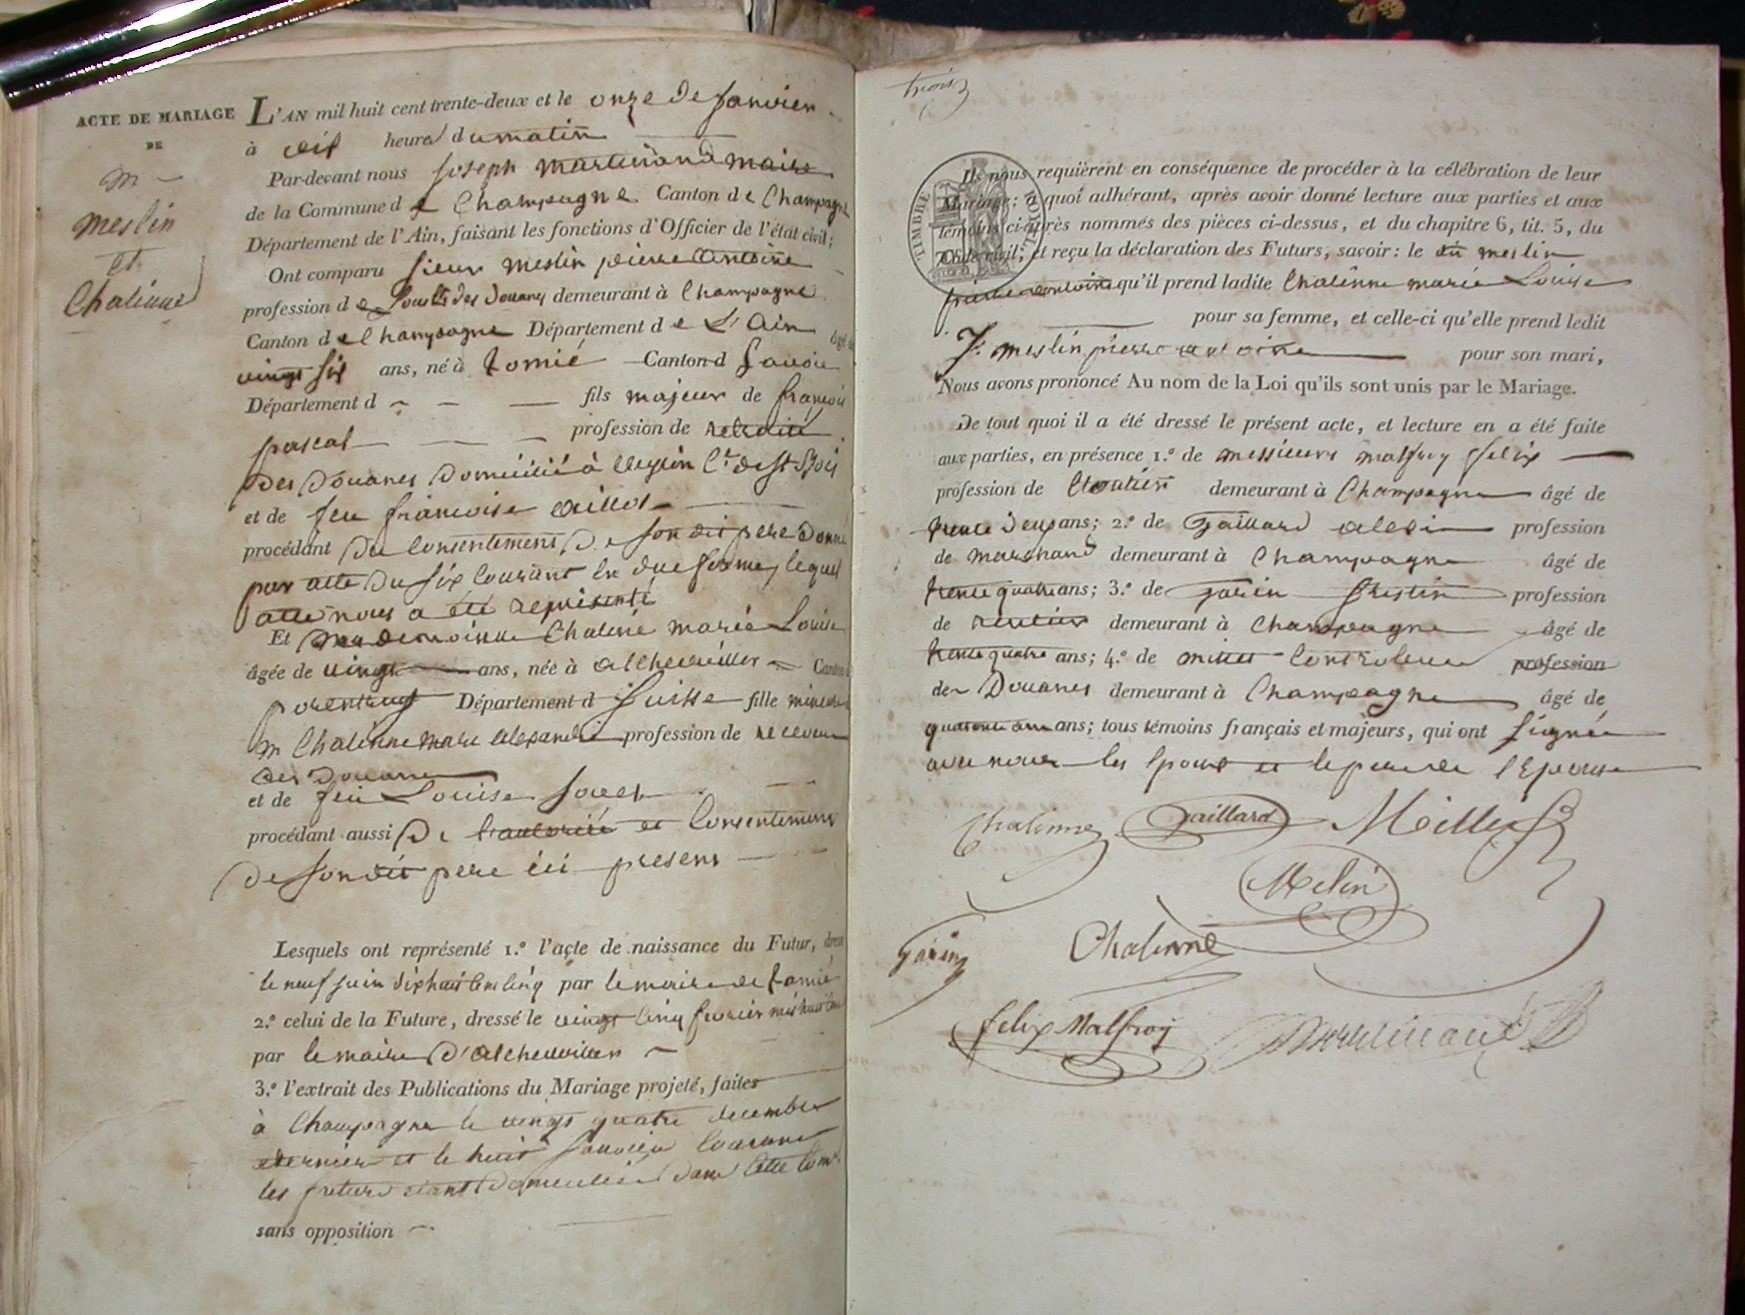 ACTE DE MARIAGE
DE
M
Meslin
et
Chalinne
L'AN mil huit cent trente-deux et le onze de Janvier
à dix heures du matin
Par-devant nous Joseph Martinand maire
de la Commune de Champagne Canton de Champagne
Département de l'Ain, faisant les fonctions d'Officier de l'état civil;
Ont comparu Sieur meslin pierre antoine
profession de des Douanes demeurant à Champagne
Canton de Champagne Département de L'Ain âgé de
vingt six ans, né à Canton d Savoie
Département d fils majeur de françois
pascal profession de retraité
des Douanes domicilié à
et de feu françoise
procédant du Consentement de son dit pere donné
par acte du six courant en due forme, lequel
acte nous a été représenté
Et mademoiselle Chalinne marie Louise
âgée de vingt ans, née à Canton
porentruy Département d Suisse fille mineure
M Chalinne marc alexandre profession de receveur
des Douanes
et de feu Louise
procédant aussi de l'autorité et Consentement
de son dit pere ici present
Lesquels ont représenté 1.° l'acte de naissance du Futur, dressé
le neuf juin dix huit cent cinq par le maire de
2.° celui de la Future, dressé le vingt cinq fevrier mil huit
par le maire d'
3.° l'extrait des Publications du Mariage projeté, faites
à Champagne le vingt quatre decembre
dernier et le huit Janvier Courant
les futurs etant domiciliés dans cette Com.e
sans opposition
trois
TIMBRE ROYAL
Ils nous requièrent en conséquence de procéder à la célébration de leur
Mariage: à quoi adhérant, après avoir donné lecture aux parties et aux
témoins ci-après nommés des pièces ci-dessus, et du chapitre 6, tit. 5, du
Code civil; et reçu la déclaration des Futurs, savoir: le dit meslin
pierre antoine qu'il prend ladite Chalinne marie Louise
pour sa femme, et celle-ci qu'elle prend ledit
Sr meslin pierre antoine pour son mari,
Nous avons prononcé Au nom de la Loi qu'ils sont unis par le Mariage.
De tout quoi il a été dressé le présent acte, et lecture en a été faite
aux parties, en présence 1.° de messieurs malfroy felix
profession de Cloutier demeurant à Champagne âgé de
trente deux ans; 2.° de Gaillard alexi profession
de marchand demeurant à Champagne âgé de
trente quatre ans; 3.° de Garin profession
de rentier demeurant à Champagne âgé de
trente quatre ans; 4.° de Controleur profession
des Douanes demeurant à Champagne âgé de
quarante ans; tous témoins français et majeurs, qui ont signé
avec nous les epoux et le pere de l'Epouse
Chalinne Gaillard Millet
Melin
Garin Chalinne
felix Malfroy Martinand